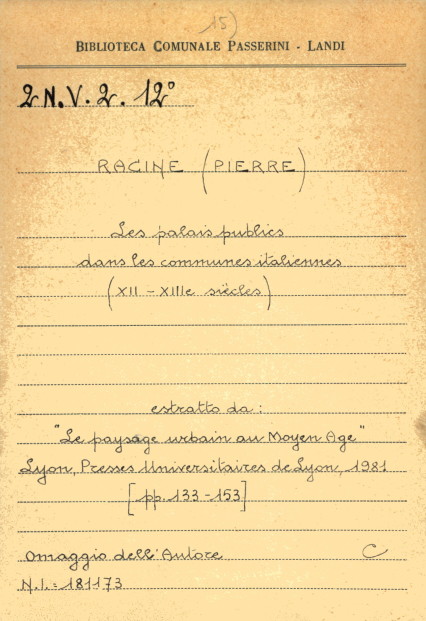 15)
BIBLIOTECA COMUNALE PASSERINI - LANDI
2 N.V. 2. 12°
RACINE (PIERRE)
Les palais publics
dans les communes italiennes
(XII - XIIIe siècles)
estratto da :
"Le paysage urbain au Moyen Age"
Lyon, Presses Universitaires de Lyon, 1981
[pp. 133-153]
Omaggio dell'Autore C
N.I. = 181173